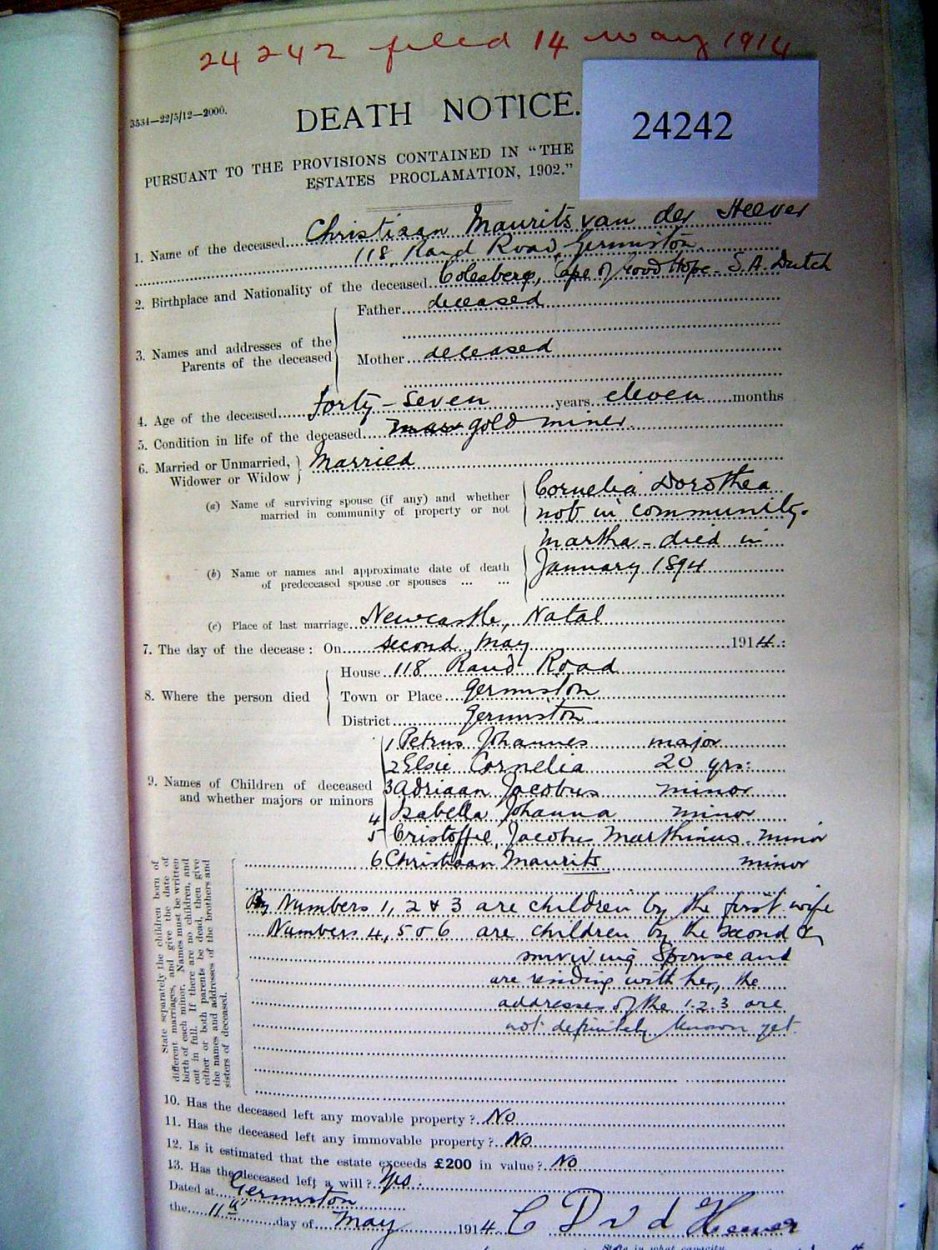 24242 filed 14 May 1914
3534—22/5/12—2000.
DEATH NOTICE.
24242
PURSUANT TO THE PROVISIONS CONTAINED IN "THE
ESTATES PROCLAMATION, 1902."
1. Name of the deceased Christiaan Maurits van der Heever
118, Rand Road, Germiston
2. Birthplace and Nationality of the deceased Colesberg, Cape of Good Hope. S.A. Dutch
3. Names and addresses of the Parents of the deceased
Father deceased
Mother deceased
4. Age of the deceased Forty-Seven years eleven months
5. Condition in life of the deceased gold miner.
6. Married or Unmarried, Widower or Widow Married
(a) Name of surviving spouse (if any) and whether married in community of property or not
Cornelia Dorothea
not in community.
(b) Name or names and approximate date of death of predeceased spouse or spouses ... ...
Martha - died in
January 1894
(c) Place of last marriage Newcastle, Natal
7. The day of the decease: On second May 1914:
8. Where the person died
House 118 Rand Road
Town or Place Germiston
District Germiston
9. Names of Children of deceased and whether majors or minors
1 Petrus Johannes major
2 Elsie Cornelia 20 yrs:
3 Adriaan Jacobus minor
4 Isabella Johanna minor
5 Cristoffel Jacobus Marthinus. minor
6 Christiaan Maurits minor
State separately the children born of
different marriages, and give the date of
birth of each minor. Names must be written
out in full. If there are no children, and
either or both parents be dead, then give
the names and addresses of the brothers and
sisters of deceased.
Numbers 1, 2 & 3 are children by the first wife
Numbers 4, 5 & 6 are children by the second &
surviving Spouse and
are residing with her, the
addresses of the 1.2.3 are
not definitely known yet
10. Has the deceased left any movable property? No
11. Has the deceased left any immovable property? No
12. Is it estimated that the estate exceeds £200 in value? No
13. Has the deceased left a will? Yes.
Dated at Germiston
the 11th day of May 1914 C D v d Heever
State in what capacity